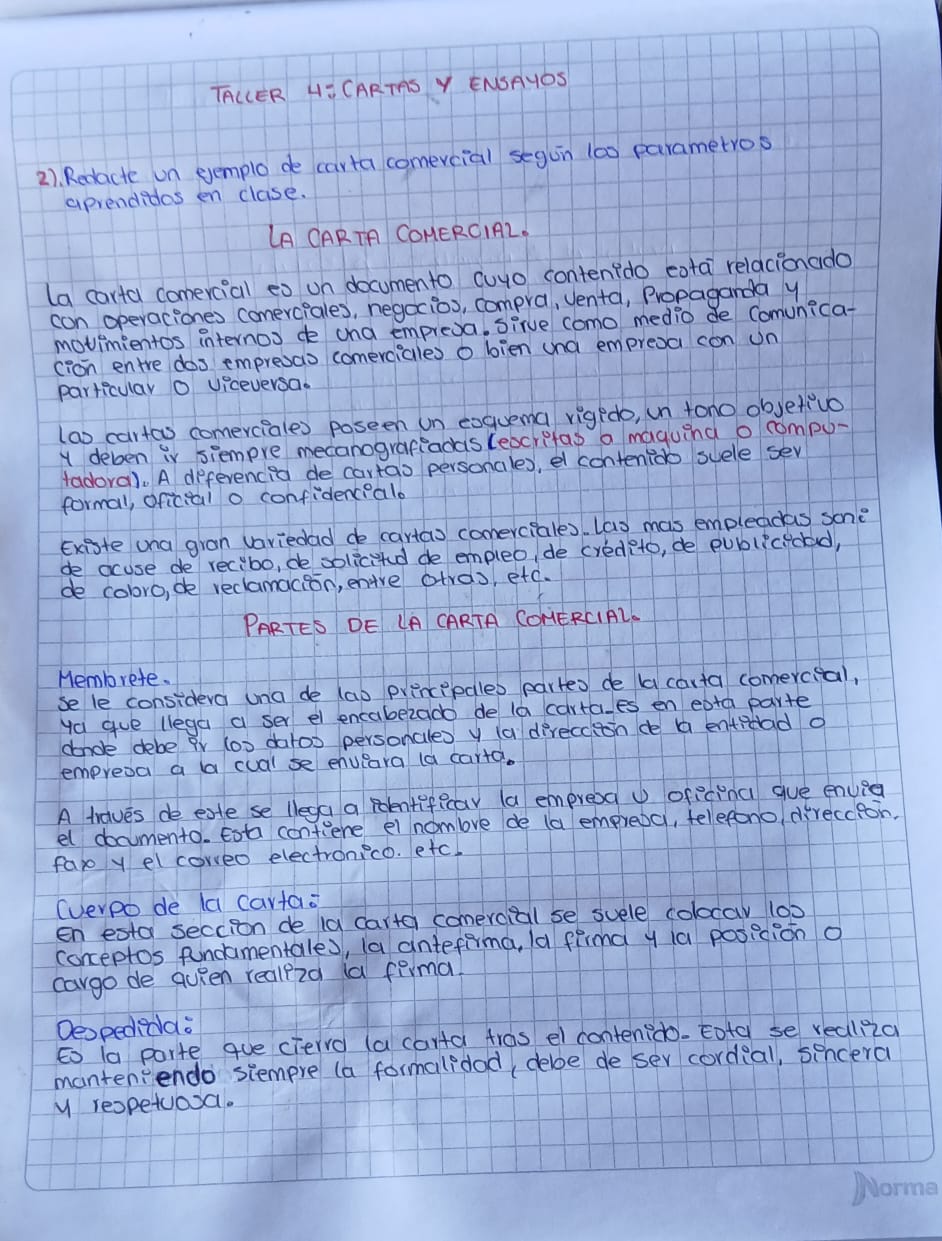 TALLER 4: CARTAS Y ENSAYOS
2). Redacte un ejemplo de carta comercial según los parametros
aprendidos en clase.
LA CARTA COMERCIAL.
La carta comercial es un documento cuyo contenido está relacionado
con operaciones comerciales, negocios, compra, venta, Propaganda y
movimientos internos de una empresa. Sirve como medio de comunica-
ción entre dos empresas comerciales o bien una empresa con un
particular o viceversa.
Las cartas comerciales poseen un esquema rigido, un tono objetivo
y deben ir siempre mecanografiadas (escritas a maquina o compu-
tadora). A diferencia de cartas personales, el contenido suele ser
formal, oficial o confidencial.
Existe una gran variedad de cartas comerciales. Las mas empleadas son:
de acuse de recibo, de solicitud de empleo, de crédito, de publicidad,
de cobro, de reclamación, entre otras, etc.
PARTES DE LA CARTA COMERCIAL.
Membrete.
se le considera una de las principales partes de la carta comercial,
ya que llega a ser el encabezado de la carta. Es en esta parte
donde debe ir los datos personales y la dirección de la entidad o
empresa a la cual se enviara la carta.
A través de este se llega a identificar la empresa u oficina que envia
el documento. Esta contiene el nombre de la empresa, telefono, dirección,
fax y el correo electronico. etc.
Cuerpo de la carta:
en esta seccion de la carta comercial se suele colocar los
conceptos fundamentales, la antefirma, la firma y la posición o
cargo de quien realiza la firma.
Despedida:
Es la parte que cierra la carta tras el contenido. Esta se realiza
manteniendo siempre la formalidad, debe de ser cordial, sincera
y respetuosa.
Norma